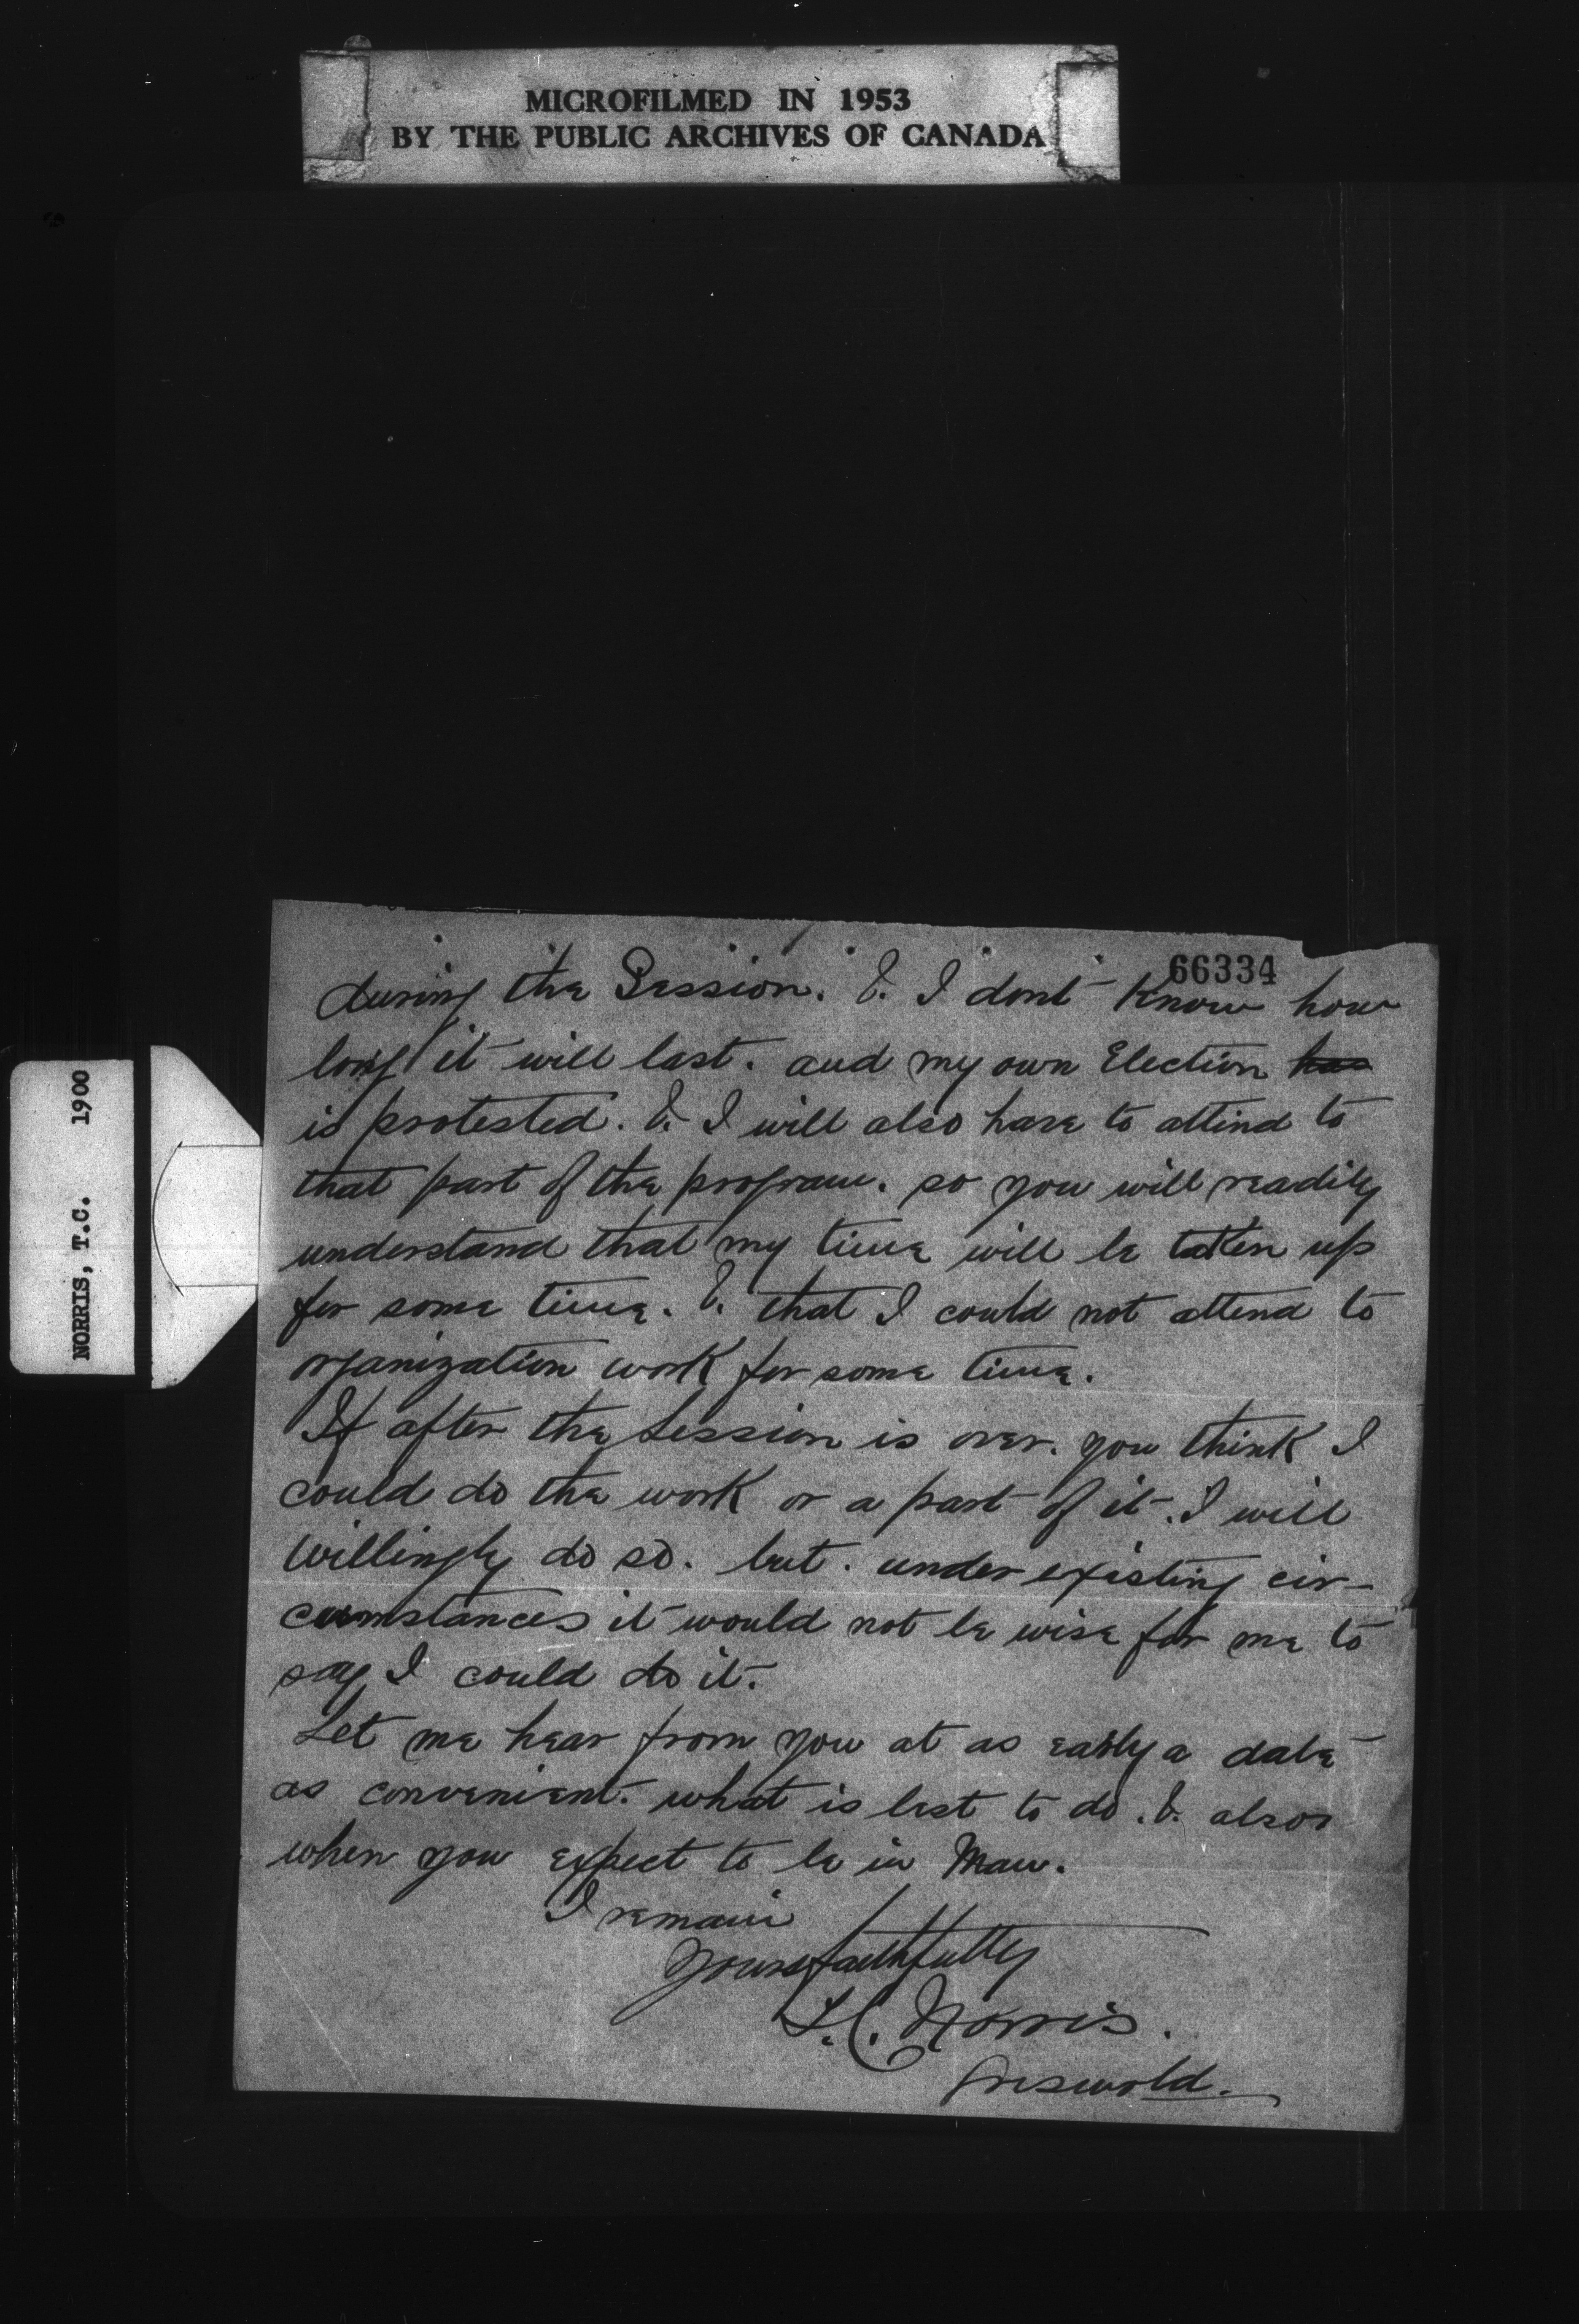 MICROFILMED IN 1953
BY THE PUBLIC ARCHIVES OF CANADA
NORRIS, T.C. 1900
66334
during the Session. & I dont Know how
long it will last. and my own Election has
is protested. & I will also have to attend to
that part of the program. so you will readily
understand that my time will be taken up
for some time. & that I could not attend to
organization work for some time.
If after the Session is over. you think I
could do the work or a part of it. I will
willingly do so. but. under existing cir-
cumstances it would not be wise for me to
say I could do it.
Let me hear from you at as early a date
as convenient. what is best to do. & also
when you expect to be in Man.
I remain
Yours faithfully
T.C. Norris.
Griswold.